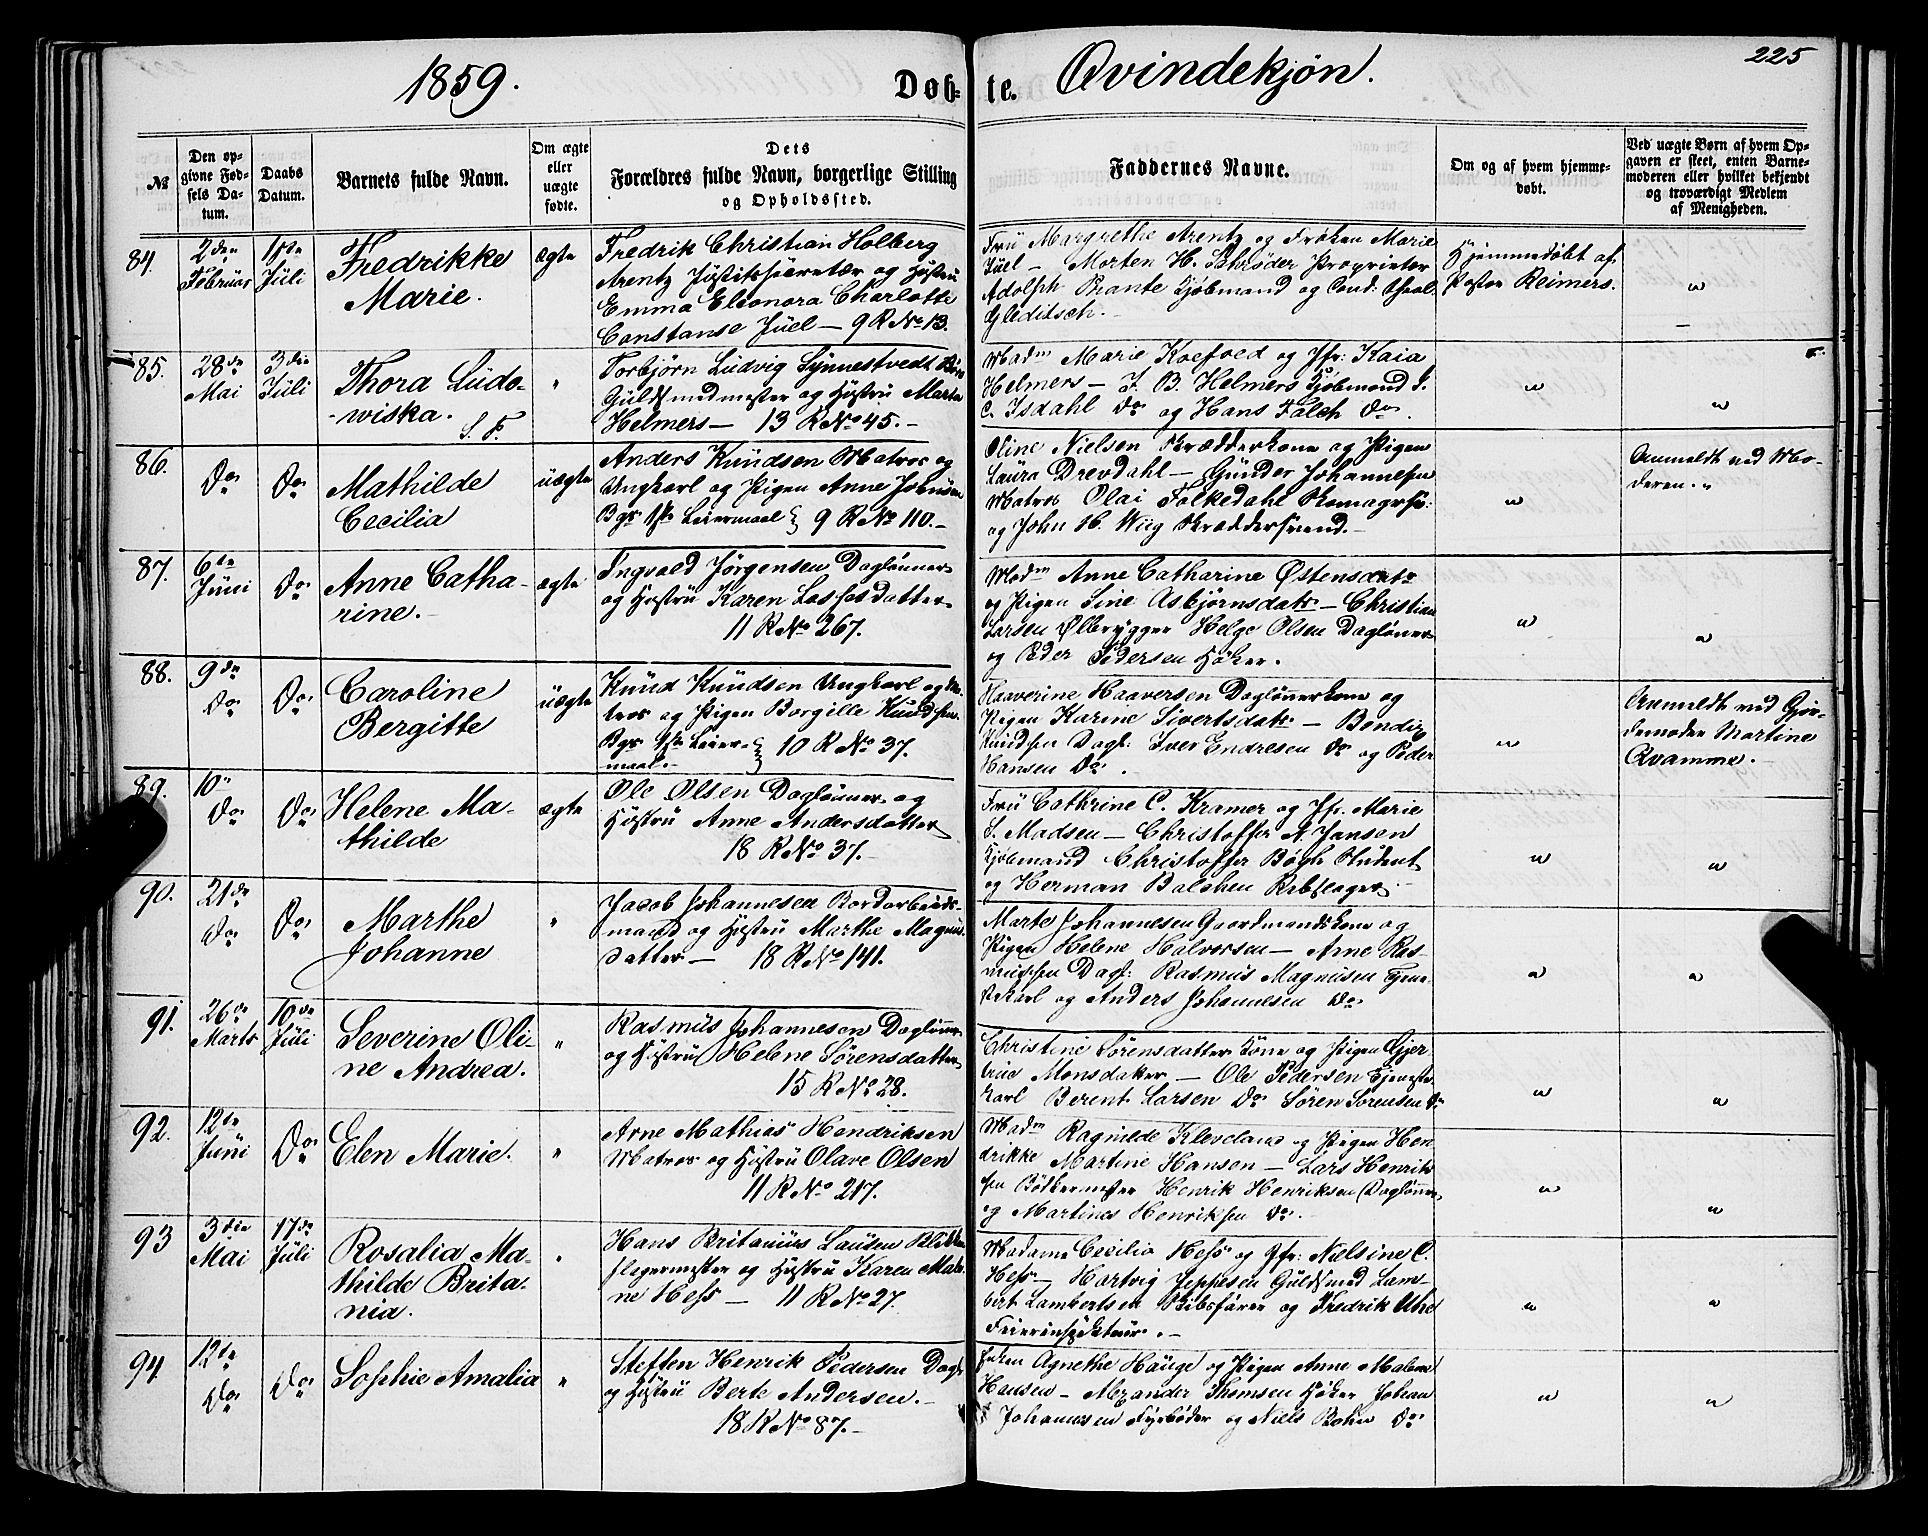 1859.
Døb-
te.
Qvindekjön.
225
No
Den op-
givne Fød-
sels Da-
tum.
Daabs
Datum.
Barnets fulde Navn.
Om ægte
eller
uægte
fødte.
Dets
Forældres fulde Navn, borgerlige Stilling
og Opholdssted.
Faddernes Navne.
Om og af hvem hjemme-
døbt.
Ved uægte Børn af hvem Op-
gaven er skeet, enten Barne-
moderen eller hvilket bekjendt
og troværdigt Medlem
af Menigheden.
84.
2den
Februar
1ste
Juli
Fredrikke
Marie.
ægte
Fredrik Christian Holberg
Arentz Justitssecretær og Hustru
Emma Eleonora Charlotte
Constanse Juel — 9 R No 13.
Fru Margrethe Arentz og Frøken Marie
Juel — Morten H. Schrøder Proprietær
Adolph Kjøbmand og Cand: theol:
Gleditsch.
Hjemmedøbt af
Pastor Reimers.
"
85.
28de
Mai
3die
Juli
Thora Ludo-
-wiska.
"
Torbjørn Ludvig Synnestvedt
Guldsmedmester og Hustru Marta
Helmers — 13 R No 45. —
Madm Marie Koefoed og Jfr: Kaia
Helmers — J. B. Helmers Kjøbmand J.
C. Isdahl Do og Hans Falch Do.
"
"
86.
Do
Do
Mathilde
Cecilia
uægte
Anders Knudsen Matros og
Ungkarl og Pigen Anne
Bgs 1ste Leiermaal } 9 R No 110. —
Oline Nielsen Skrædderkone og Pigen
Laura Drevdahl — Gunder Johannesen
Matros Olai Folkedahl Skomagersv:
og John H. Wiig Skræddersvend.
"
Anmeldt ved Mo-
deren. "
87.
6te
Juni
Do
Anne Catha-
rine. —
ægte
Ingvald Jörgensen Daglønner
og Hustru Karen datter
11 R No 267.
Madm Anne Catharine Østensdatr
og Pigen Sine Asbjørnsdatr — Christian
Larsen Ølbrygger Helge Olsen Dagløner
og Peder Pedersen Høker.
"
"
88.
9de
Do
Do
Caroline
Bergitte
uægte
Knud Knudsen Ungkarl og Ma-
tros og Pigen Borgille Knudsen
Bgs 1ste Leier- } 10 R No 37.
maal. -
Haaverine Haaversen Daglønnerkone og
Pigen Karine Sivertsdatr — Bendix
Knudsen Dagl: Iver Endresen Do og Peder
Hansen Do.
"
Anmeldt ved Gjor-
demoder Martine
Qvamme.
89.
10"
Do
Do
Helene Ma-
thilde
ægte
Ole Olsen Daglønner og
Hustru Anne Andersdatter
18 R No 37. —
Fru Cathrine C. Kramer og Jfr. Marie
S. Madsen — Christoffer A Jansen
Kjøbmand Christoffer Bøgh Student
og Herman Balchen Rebslager.
"
"
90.
21de
Do
Do
Marthe
Johanne
"
Jacob Johannesen Bordarbeids-
mand og Hustru Marthe Magnus-
datter — 18 R No 141.
Marte Johannesen Gaardmandskone og
Pigen Helene Halversen — Arne Ras-
mussen Dagl: Rasmus Magnusen Tjene-
stekarl og Anders Johannesen Do
"
"
91.
26de
Marts
10de
Juli
Severine Oli-
ne Andrea.
"
Rasmus Johannesen Daglönner
og Hustru Helene Sørensdatter
15 R No 28.
Christine Sørensdatter Kone og Pigen Gjer-
true Monsdatter — Ole Pedersen Tjeneste-
karl Berent Larsen Do Søren Sørensen Do
"
"
92.
12te
Juni
Do
Elen Marie.
"
Arne Mathias Hendriksen
Matros og Hustru Olave Olsen
11 R No 217.
Madm Ragnilde Kleveland og Pigen Hen-
drikke Martine Hansen — Lars Henrik-
sen Bødkermester Henrik Henriksen Daglønner
og Martines Henriksen Do.
"
"
93
3die
Mai
17de
Juli
Rosalia Ma-
thilde Brita-
nia.
"
Hans Britanius Lausen Blikken-
slagermester og Hustru Karen Male-
ne Hess — 11 R No 27.
Madame Cecilia Hess og Jfr: Nielsine C.
Hess — Hartvig Jeppesen Guldsmed Lam-
bert Lambertsen Skibsfører og Fredrik Uhe
Feierinspekteur. —
"
"
94
12te
Do
Do
Sophie Amalia
"
Steffen Henrik Pedersen Dagl:
og Hustru Berte Andersen. —
18 R No 87. —
Enken Agnethe Hauge og Pigen Anne Malene
Hansen — Alexander Thomsen Høker Johan
Johannesen Fyrbøder og Niels Bohn Do
"
"